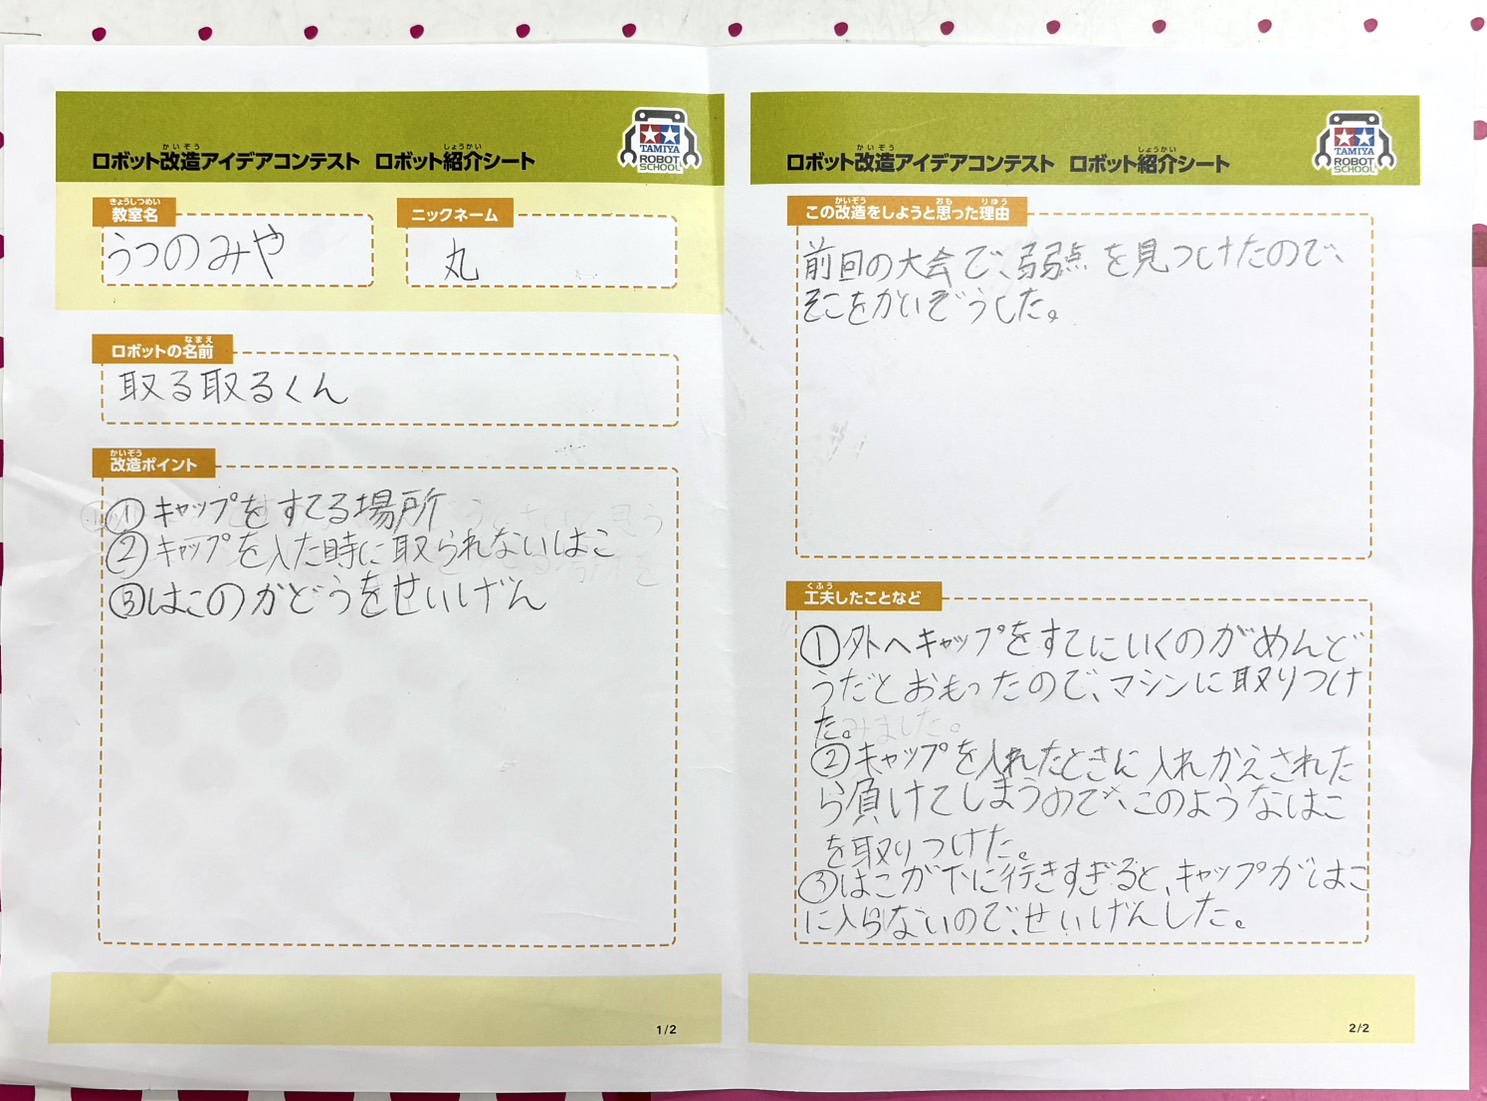 ロボット改造アイデアコンテスト ロボット紹介シート
かいぞう しょうかい
TAMIYA
ROBOT
SCHOOL
きょうしつめい
教室名
うつのみや
ニックネーム
丸
なまえ
ロボットの名前
取る取るくん
かいぞう
改造ポイント
①キャップをすてる場所
②キャップを入た時に取られないはこ
③はこのかどうをせいげん
1/2
ロボット改造アイデアコンテスト ロボット紹介シート
かいぞう しょうかい
TAMIYA
ROBOT
SCHOOL
かいぞう おも りゆう
この改造をしようと思った理由
前回の大会で、弱点を見つけたので、
そこをかいぞうした。
くふう
工夫したことなど
①外へキャップをすてにいくのがめんど
うだとおもったので、マシンに取りつけ
た。
②キャップを入れたときに入れかえされた
ら負けてしまうので、このようなはこ
を取りつけた。
③はこが下に行きすぎると、キャップがはこ
に入らないので、せいげんした。
2/2